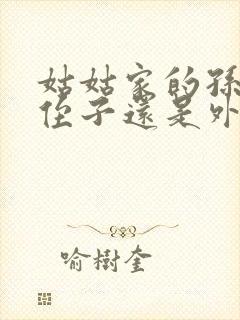 姑姑家的孫
侄子還是外
喻樹奎